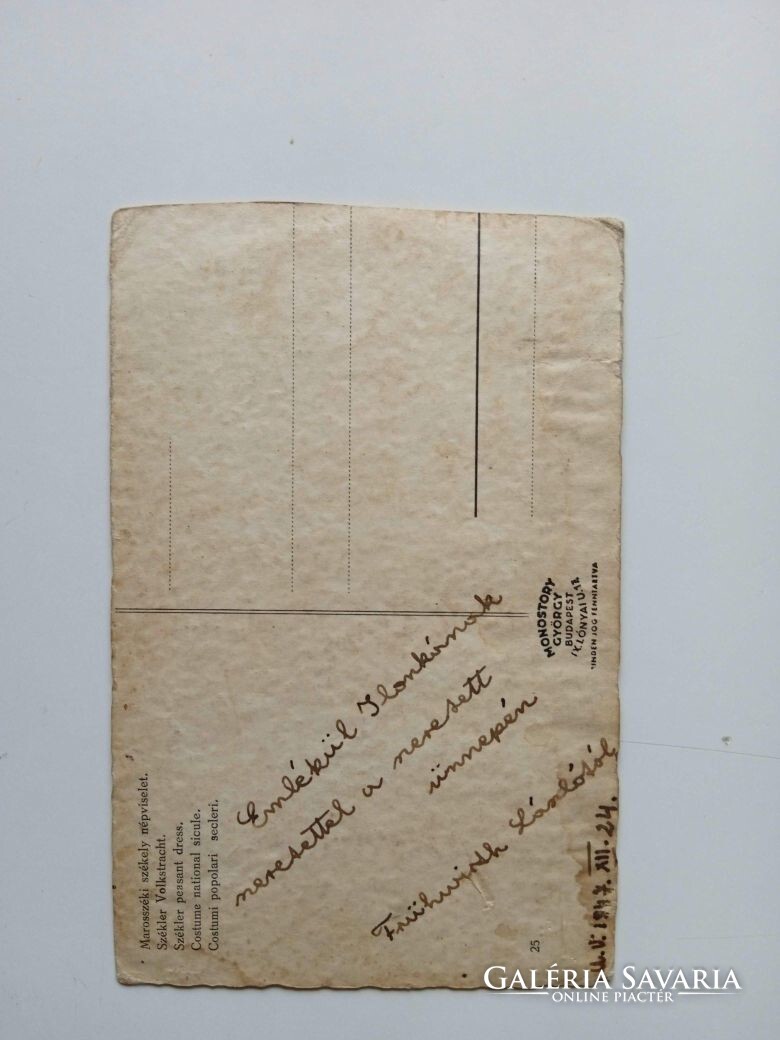 Marosszéki székely népviselet.
Székler Volkstracht.
Székler peasant dress.
Costume national sicule.
Costumi popolari secleri.
Emlékül Ilonkának
szeretettel a szeretett
ünnepén
Frühwirth Lászlótól
1947. XII. 24.
25
MONOSTORY
GYÖRGY
BUDAPEST
IX LÓNYAI U.
MINDEN JOG FENNTARTVA
GALÉRIA SAVARIA
ONLINE PIACTÉR